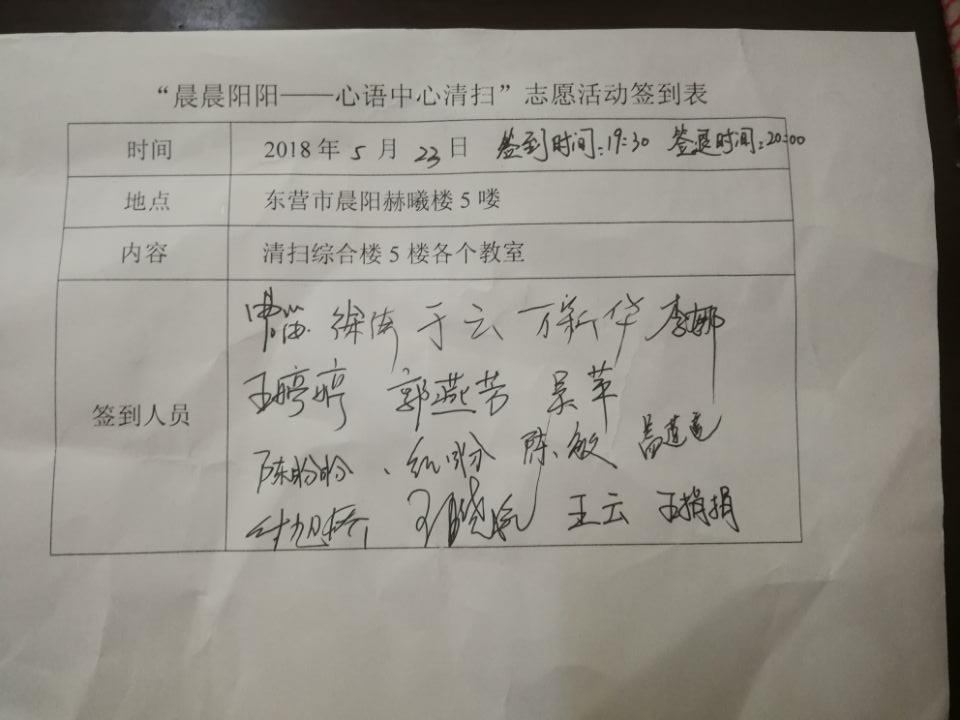 “晨晨阳阳——心语中心清扫”志愿活动签到表
时间 2018年5月23日 签到时间:19:30 签退时间:20:00
地点 东营市晨阳赫曦楼5喽
内容 清扫综合楼5楼各个教室
于云 万新华 李娜
王婷婷 郭燕芳 吴苹
签到人员
陈盼盼、 陈敏
王云 王捐捐